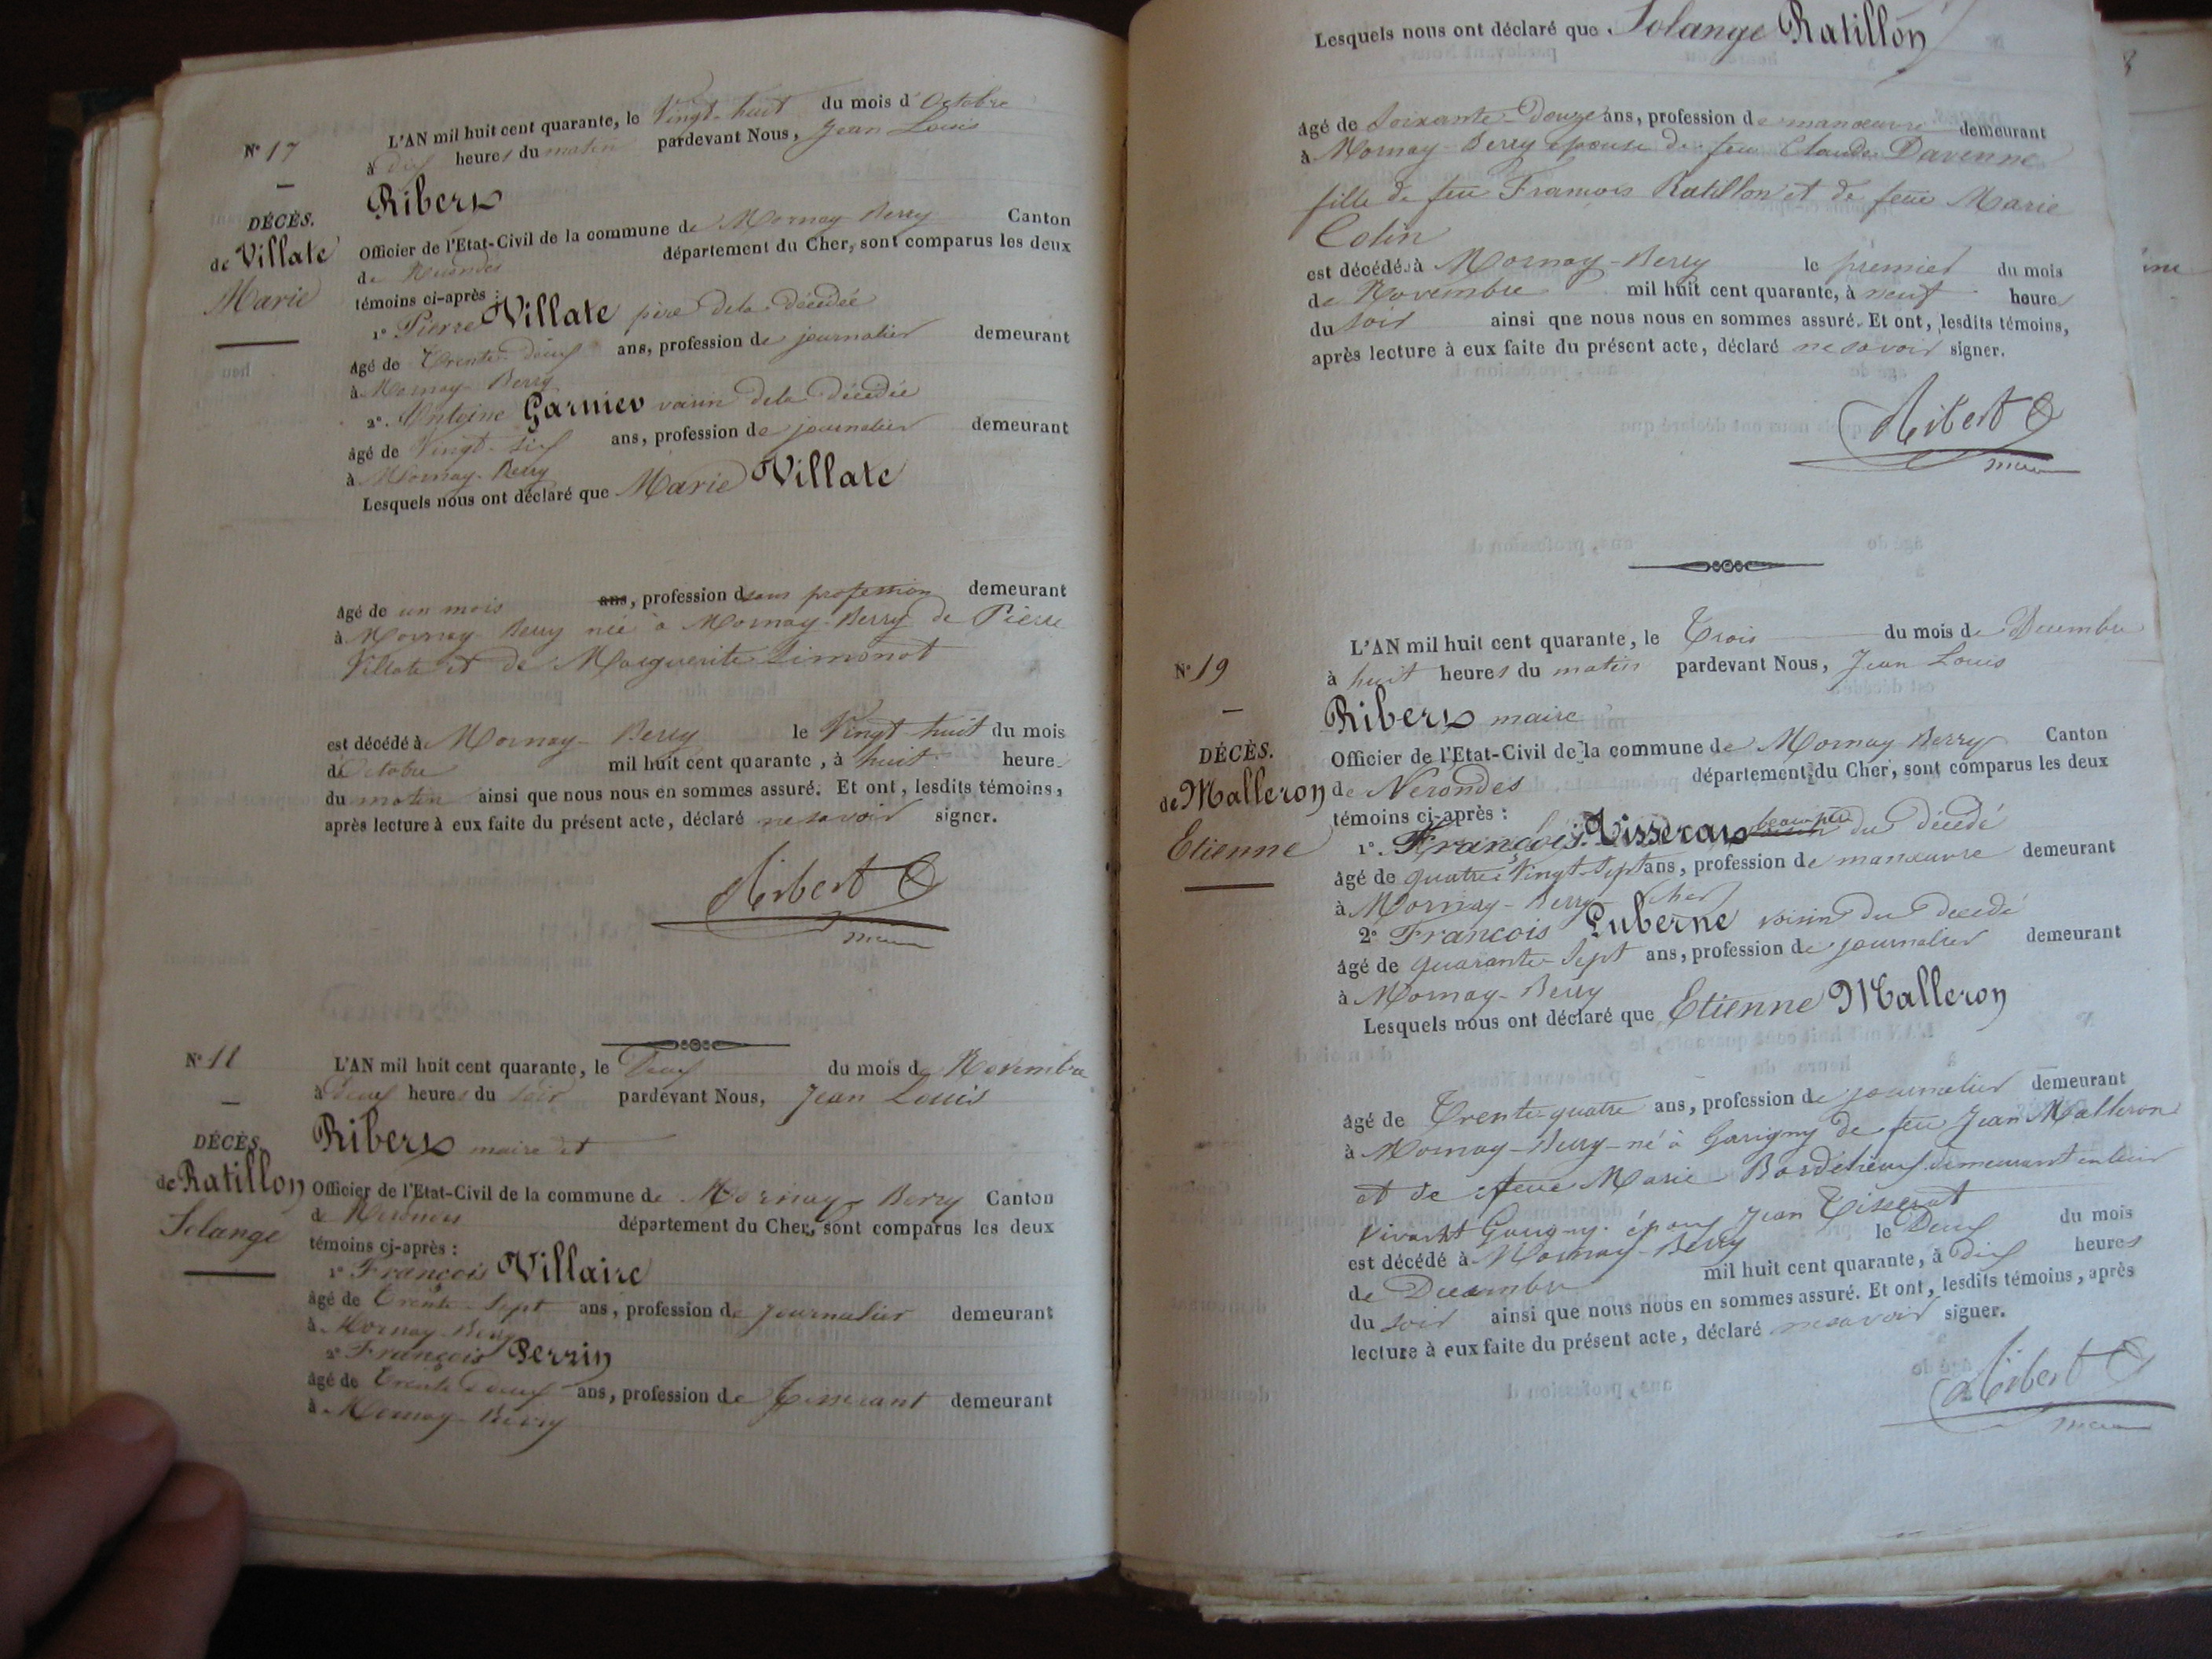 N° 17
DÉCÈS.
de Villate
Marie
L'AN mil huit cent quarante, le Vingt-huit du mois d'Octobre
à dix heures du matin pardevant Nous, Jean Louis
Ribert
Officier de l'Etat-Civil de la commune de Mornay-Berry Canton
de Nerondes département du Cher, sont comparus les deux
témoins ci-après :
1° Pierre Villate père dela décédée
âgé de Trente-deux ans, profession de journalier demeurant
à Mornay-Berry
2°. Antoine Garnier voisin dela décédée
âgé de Vingt-six ans, profession de journalier demeurant
à Mornay-Berry
Lesquels nous ont déclaré que Marie Villate
âgé de un mois ans, profession d sans profession demeurant
à Mornay-Berry née à Mornay-Berry de Pierre
Villate et de Marguerite Simonot
est décédé à Mornay-Berry le Vingt-huit du mois
d'Octobre mil huit cent quarante, à huit heure
du matin ainsi que nous nous en sommes assuré. Et ont, lesdits témoins,
après lecture à eux faite du présent acte, déclaré ne savoir signer.
Ribert
maire
N° 18
DÉCÈS.
de Ratillon
Solange
L'AN mil huit cent quarante, le Deux du mois de Novembre
à Deux heures du soir pardevant Nous, Jean Louis
Ribert maire et
Officier de l'Etat-Civil de la commune de Mornay-Berry Canton
de Nerondes département du Cher, sont comparus les deux
témoins ci-après :
1° François Villaire
âgé de Trente-Sept ans, profession de Journalier demeurant
à Mornay-Berry
2° François Perrin
âgé de Trente deux ans, profession de Tisserant demeurant
à Mornay-Berry
Lesquels nous ont déclaré que Solange Ratillon
âgé de Soixante-Douze ans, profession de manœuvre demeurant
à Mornay-Berry épouse de feu Claude Davenne
fille de feu François Ratillon et de feue Marie
Colin
est décédé à Mornay-Berry le premier du mois
de Novembre mil huit cent quarante, à neuf heures
du soir ainsi que nous nous en sommes assuré. Et ont, lesdits témoins,
après lecture à eux faite du présent acte, déclaré ne savoir signer.
Ribert
maire
N° 19
DÉCÈS.
de Malleron
Etienne
L'AN mil huit cent quarante, le Trois du mois de Decembre
à huit heures du matin pardevant Nous, Jean Louis
Ribert maire
Officier de l'Etat-Civil de la commune de Mornay-Berry Canton
de Nerondes département du Cher, sont comparus les deux
témoins ci-après :
1°. François Tisserat beau père du décédé
âgé de quatre Vingt-Sept ans, profession de manœuvre demeurant
à Mornay-Berry Cher
2° François Luberne voisin du décédé
âgé de quarante-Sept ans, profession de journalier demeurant
à Mornay-Berry
Lesquels nous ont déclaré que Etienne Malleron
âgé de Trente-quatre ans, profession de journalier demeurant
à Mornay-Berry né à Garigny de feu Jean Malleron
et de feue Marie demeurant en leur
vivant Garigny. époux Jean Tisserat
est décédé à Mornay-Berry le Deux du mois
de Decembre mil huit cent quarante, à dix heures
du soir ainsi que nous nous en sommes assuré. Et ont, lesdits témoins, après
lecture à eux faite du présent acte, déclaré ne savoir signer.
Ribert
maire